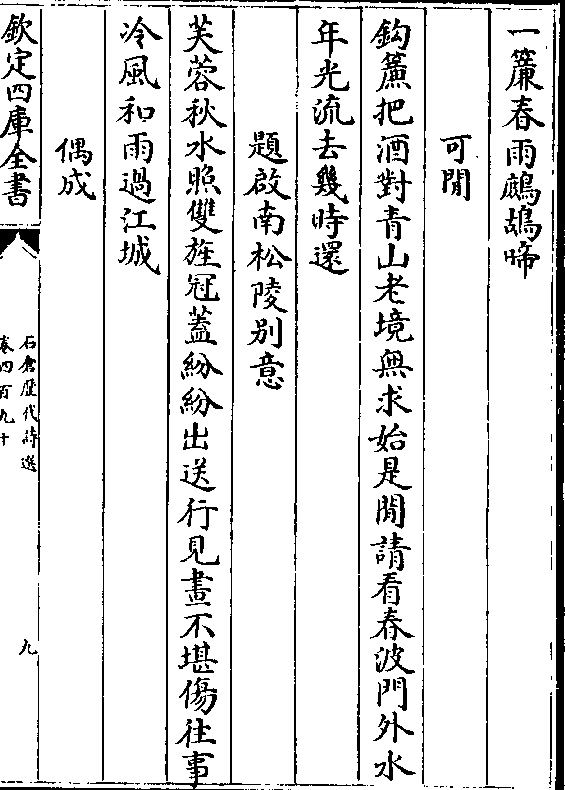 一簾春雨鷓鴣啼
可閒
鈎簾把酒對青山老境無求始是閒請看春波門外水
年光流去幾時還
題啟南松陵别意
芙蓉秋水照雙旌冠蓋紛紛出送行見畫不堪傷往事
冷風和雨過江城
偶成
欽定四庫全書
石倉歷代詩選
卷四百九十
九